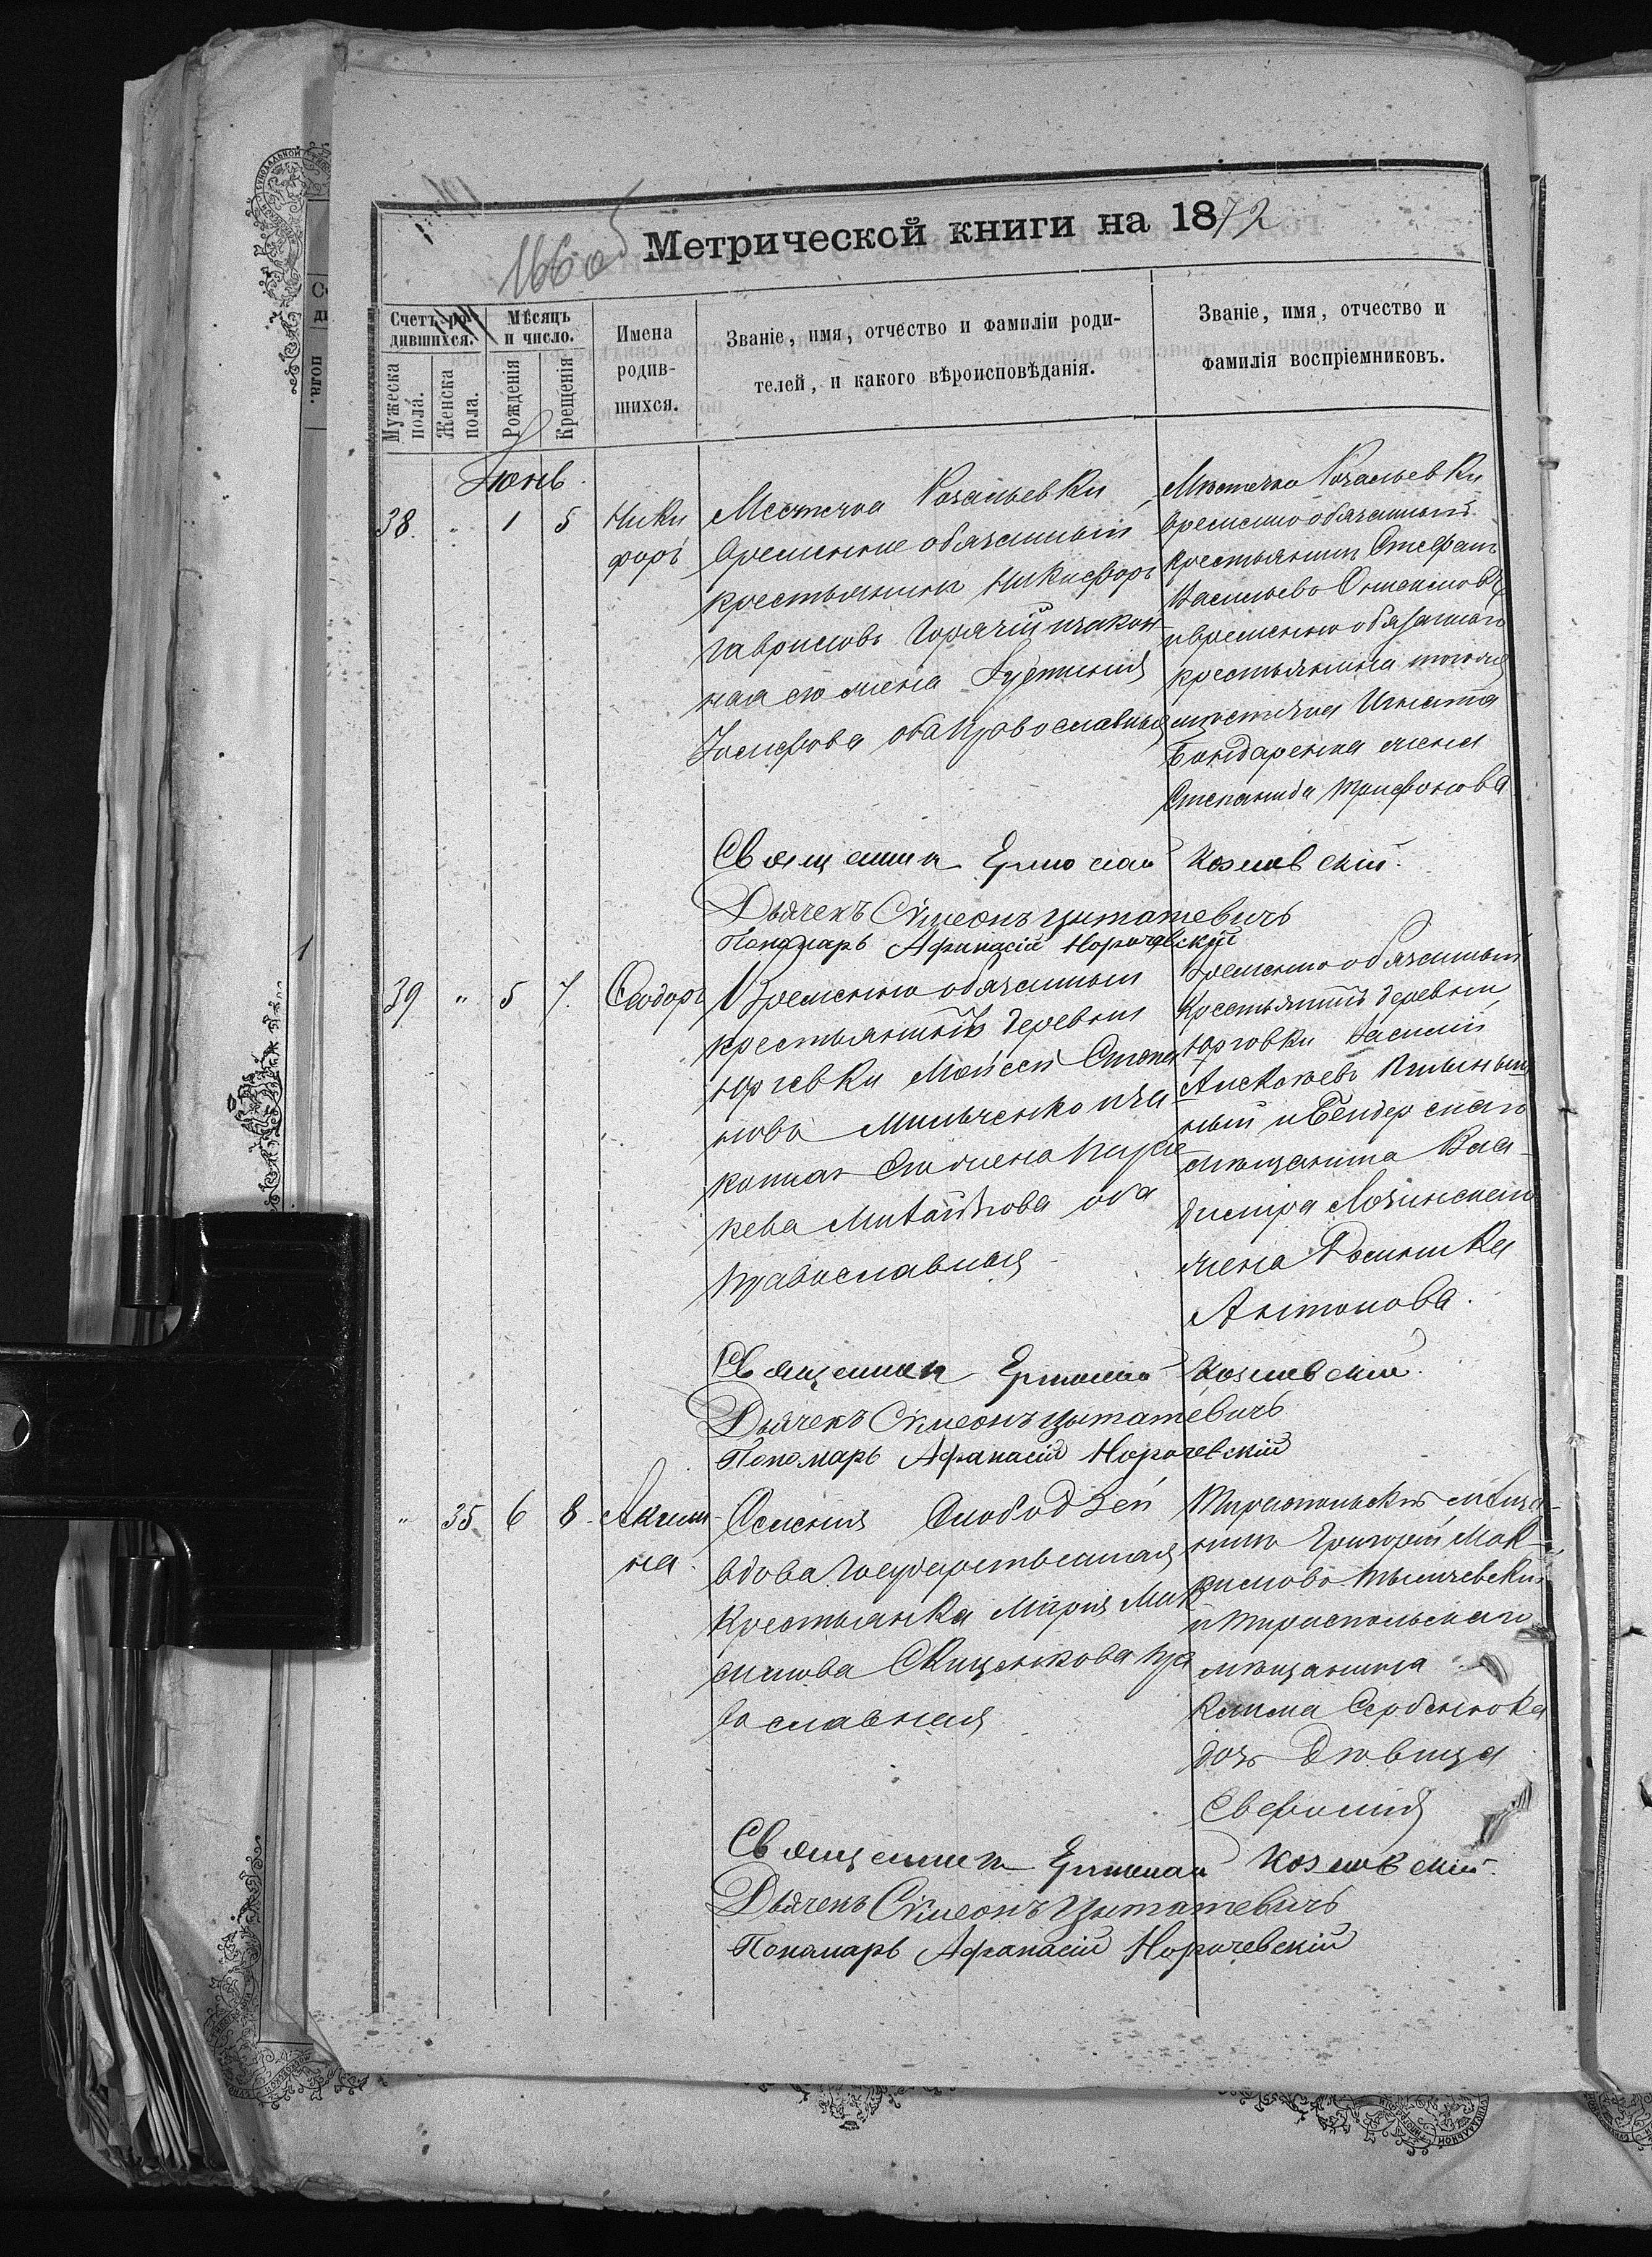 166 об
Метрической книги на 1872
Счетъ ро-
дившихся.
Мѣсяцъ
и число.
Имена
родив-
шихся.
Званіе, имя, отчество и фамиліи роди-
телей, и какого вѣроисповѣданія.
Званіе, имя, отчество и
фамилія воспріемниковъ.
Мужеска
пола.
Женска
пола.
Рожденія
Крещенія
Іюнь.
38. " 1 5 Ники
форъ
Местечка
Временно обязанный
крестьянинъ Никифоръ
Гавриловъ Горячій и закон-
ная его жена Евгенія
Іосифова оба православныя
Местечка
временно обязанный
крестьянинъ Стефанъ
Васильевъ
и временно обязаннаго
крестьянина того же
местечка Игната
Бондаренка жена
Степанида Трифонова
Священникъ Ермолай Козловскій.
Дьячекъ Симеонъ Цитатевичъ
Пономарь Афанасій Норочевскій
39 " 5 7. Феодоръ
Временно обязанный
крестьянинъ деревни
Юрьевки Мойсей
новъ Мильченко и за
конная его жена Парас
кева оба
православныя
Временно обязанный
Крестьянинъ деревни
Юрьевки Василій
Алексѣевъ
и Бендерскаго
мѣщанина Вла-
диміра Лозинскаго
жена Домника
Антонова.
Священникъ Ермолай Козловскій.
Дьячекъ Симеонъ Цитатевичъ
Пономарь Афанасій Норочевскій
" 35 6 8. Акили-
на.
Селенія Слободзеи
вдова Государственная
Крестьянка Марія Мак
симова пра
вославная
Тираспольскій мѣща-
нинъ Григорій Мак-
симовъ
и Тираспольскаго
мѣщанина
Клима Сербенюка
дочь Дѣвица
Евфимія
Священникъ Ермолай Козловскій.
Дьячекъ Симеонъ Цитатевичъ
Пономарь Афанасій Норочевскій